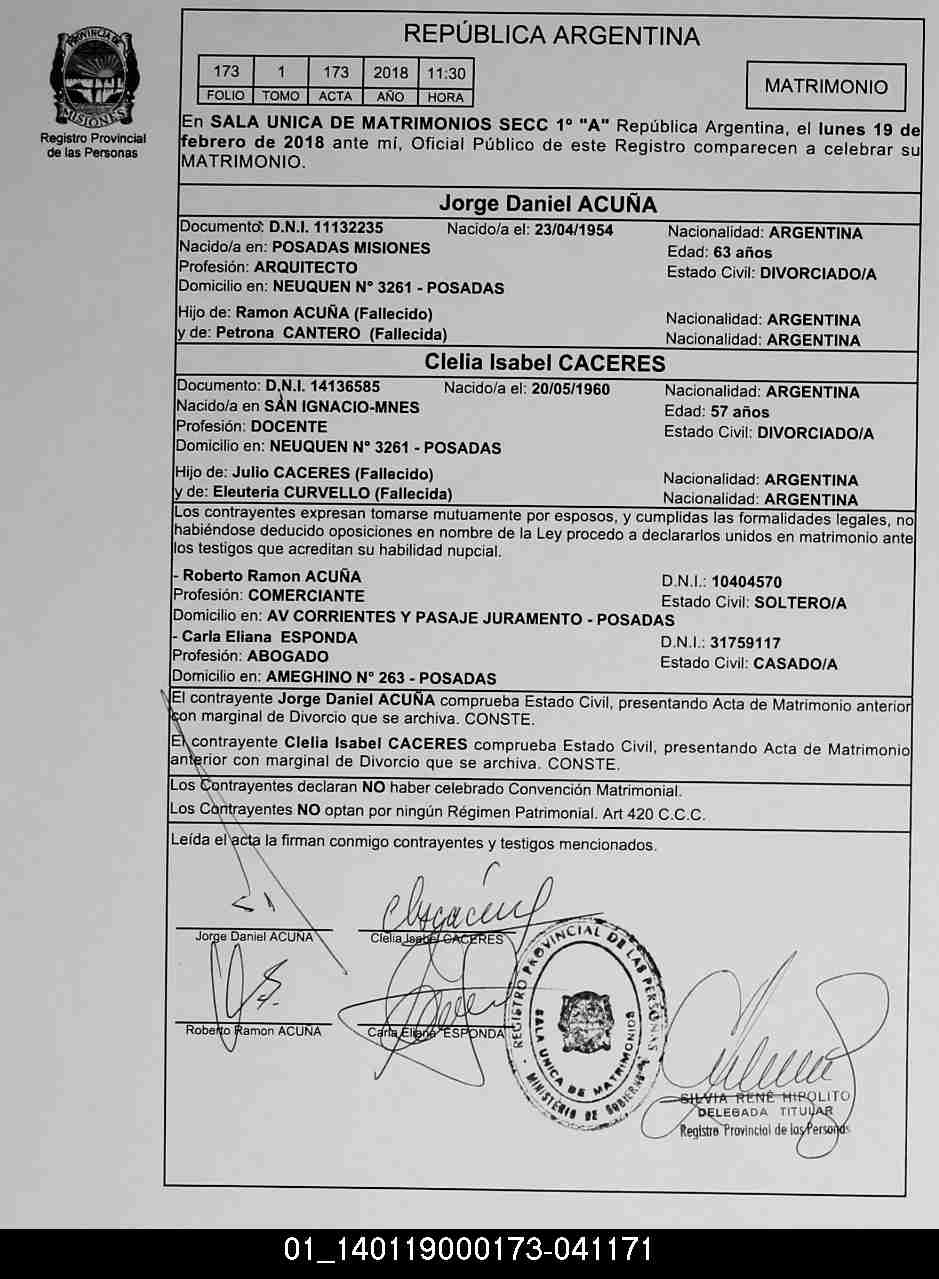 PROVINCIA DE
MISIONES
Registro Provincial
de las Personas
REPÚBLICA ARGENTINA
173 1 173 2018 11:30
FOLIO TOMO ACTA AÑO HORA
MATRIMONIO
En SALA UNICA DE MATRIMONIOS SECC 1º "A" República Argentina, el lunes 19 de
febrero de 2018 ante mí, Oficial Público de este Registro comparecen a celebrar su
MATRIMONIO.
Jorge Daniel ACUÑA
Documento: D.N.I. 11132235 Nacido/a el: 23/04/1954 Nacionalidad: ARGENTINA
Nacido/a en: POSADAS MISIONES Edad: 63 años
Profesión: ARQUITECTO Estado Civil: DIVORCIADO/A
Domicilio en: NEUQUEN N° 3261 - POSADAS
Hijo de: Ramon ACUÑA (Fallecido) Nacionalidad: ARGENTINA
y de: Petrona CANTERO (Fallecida) Nacionalidad: ARGENTINA
Clelia Isabel CACERES
Documento: D.N.I. 14136585 Nacido/a el: 20/05/1960 Nacionalidad: ARGENTINA
Nacido/a en SAN IGNACIO-MNES Edad: 57 años
Profesión: DOCENTE Estado Civil: DIVORCIADO/A
Domicilio en: NEUQUEN N° 3261 - POSADAS
Hijo de: Julio CACERES (Fallecido) Nacionalidad: ARGENTINA
y de: Eleuteria CURVELLO (Fallecida) Nacionalidad: ARGENTINA
Los contrayentes expresan tomarse mutuamente por esposos, y cumplidas las formalidades legales, no
habiéndose deducido oposiciones en nombre de la Ley procedo a declararlos unidos en matrimonio ante
los testigos que acreditan su habilidad nupcial.
- Roberto Ramon ACUÑA D.N.I.: 10404570
Profesión: COMERCIANTE Estado Civil: SOLTERO/A
Domicilio en: AV CORRIENTES Y PASAJE JURAMENTO - POSADAS
- Carla Eliana ESPONDA D.N.I.: 31759117
Profesión: ABOGADO Estado Civil: CASADO/A
Domicilio en: AMEGHINO N° 263 - POSADAS
El contrayente Jorge Daniel ACUÑA comprueba Estado Civil, presentando Acta de Matrimonio anterior
con marginal de Divorcio que se archiva. CONSTE.
El contrayente Clelia Isabel CACERES comprueba Estado Civil, presentando Acta de Matrimonio
anterior con marginal de Divorcio que se archiva. CONSTE.
Los Contrayentes declaran NO haber celebrado Convención Matrimonial.
Los Contrayentes NO optan por ningún Régimen Patrimonial. Art 420 C.C.C.
Leída el acta la firman conmigo contrayentes y testigos mencionados.
Jorge Daniel ACUÑA Clelia Isabel CACERES
Roberto Ramon ACUÑA Carla Eliana ESPONDA
REGISTRO PROVINCIAL DE LAS PERSONAS
SALA UNICA DE MATRIMONIOS
MINISTERIO DE GOBIERNO
SILVIA RENÉ HIPOLITO
DELEGADA TITULAR
Registro Provincial de las Personas
01_140119000173-041171